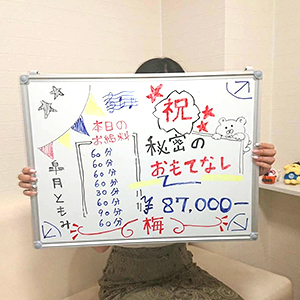 祝
秘密の
おもてなし
¥87,000-
梅
本日の
お給料
60分
60分
60分
60分
30分
60分
90分
60分
皐月ともみ